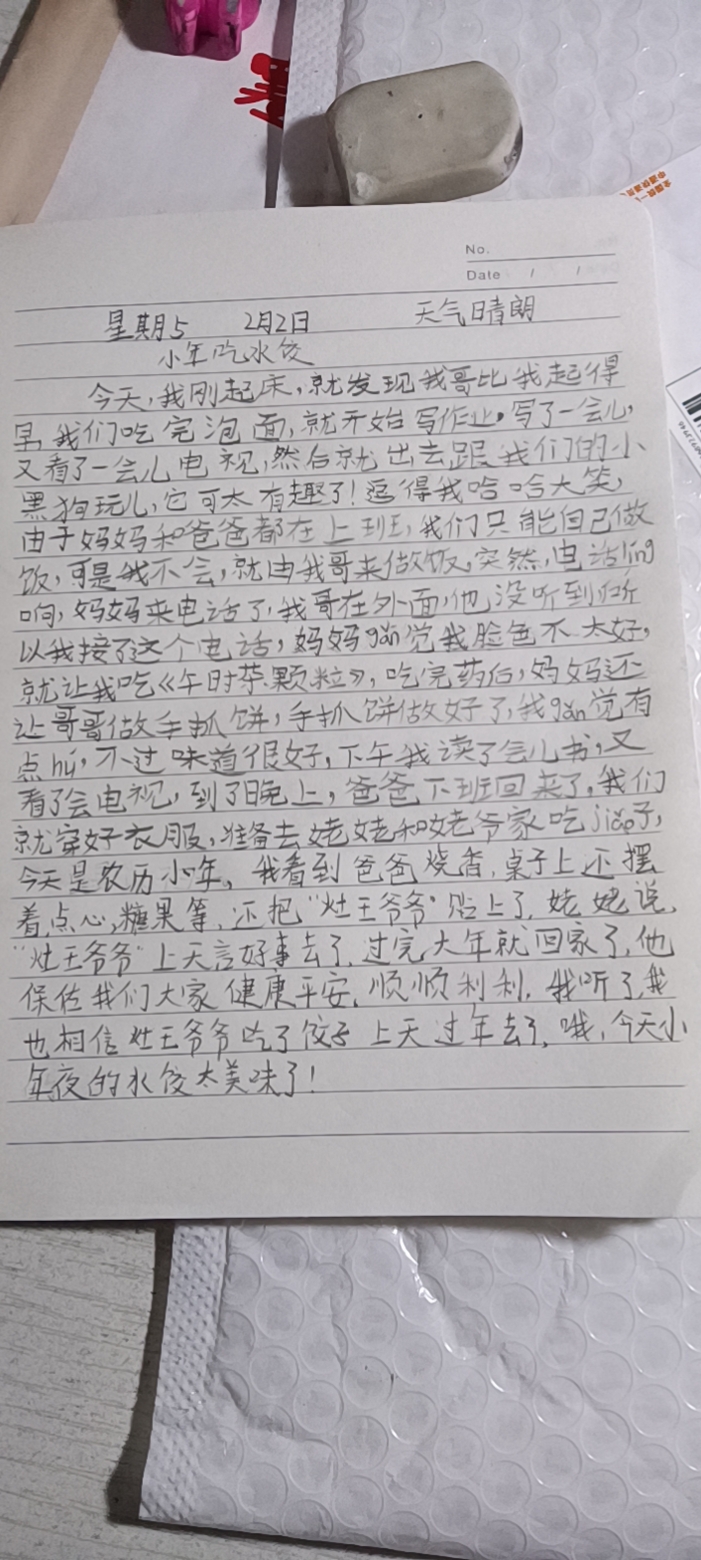 No.
Date / /
星期5 2月2日 天气晴朗
小年吃水饺
今天，我刚起床，就发现我哥比我起得
早，我们吃完泡面，就开始写作业。写了一会儿，
又看了一会儿电视，然后就出去跟我们的小
黑狗玩儿，它可太有趣了！逗得我哈哈大笑，
由于妈妈和爸爸都在上班，我们只能自己做
饭，可是我不会，就由我哥来做饭。突然，电话líng
响，妈妈来电话了，我哥在外面，他没听到所
以我接了这个电话，妈妈gǎn觉我脸色不太好，
就让我吃《午时茶颗粒》，吃完药后，妈妈还
让哥哥做手抓饼，手抓饼做好了，我gǎn觉有
点hú，不过味道很好，下午我读了会儿书，又
看了会电视，到了晚上，爸爸下班回来了。我们
就穿好衣服，准备去姥姥和姥爷家吃jiǎo子，
今天是农历小年，我看到爸爸烧香，桌子上还摆
着点心，糖果等，还把“灶王爷爷”贴上了，姥姥说，
“灶王爷爷”上天言好事去了，过完大年就回家了，他
保佑我们大家健康平安，顺顺利利，我听了，我
也相信灶王爷爷吃了饺子上天过年去了，哦，今天小
年夜的水饺太美味了！